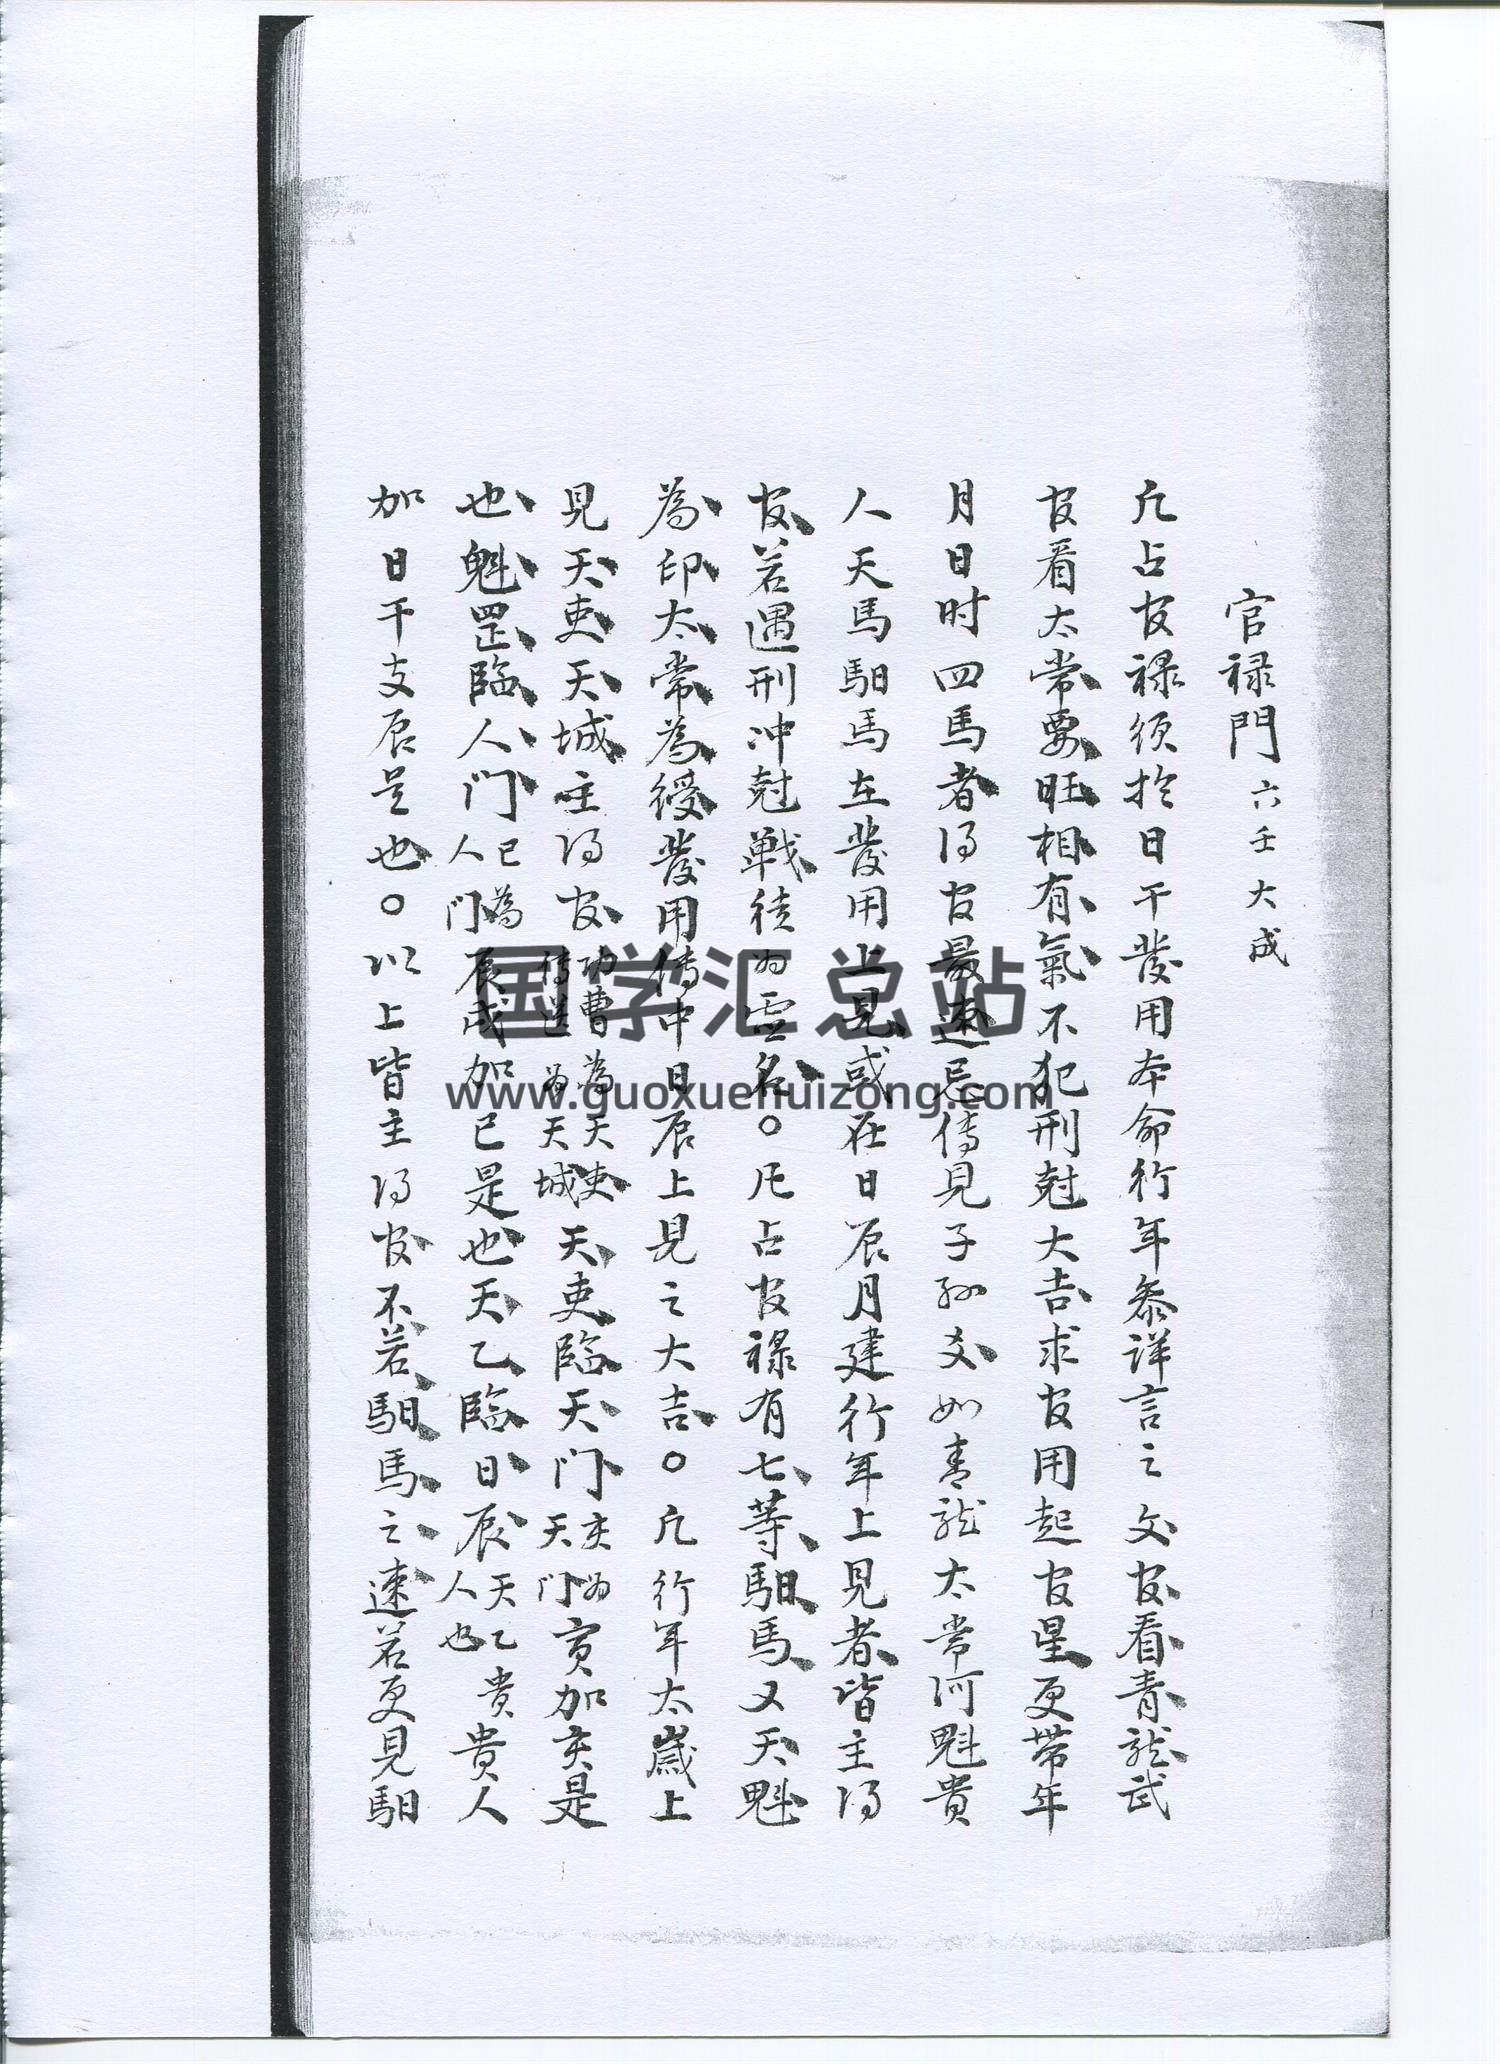 官禄門 六壬大成
凢占官禄須於日干發用本命行年叅詳言之文官看青龙武
官看太常要旺相有氣不犯刑尅大吉求官用起官星更带年
月日时四馬者得官最速忌傳見子孙爻如青龙太常河魁貴
人天馬馹馬在發用上見或在日辰月建行年上見者皆主得
官若遇刑冲尅戦徒为虚名○凡占官禄有七等馹馬又天魁
為印太常為綬發用傳中日辰上見之大吉○凢行年太歲上
見天吏天城主得官功曹為天吏傳送为天城天吏臨天门亥为天门寅加亥是
也魁罡臨人门巳為人门辰戌加巳是也天乙臨日辰天乙貴人也貴貴人
加日干支辰是也○以上皆主得官不若馹馬之速若更見馹
国学汇总站
www.guoxuehuizong.com